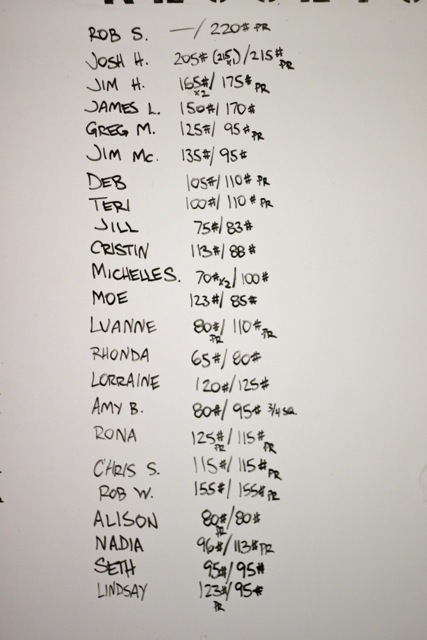 ROB S. —/220# PR
JOSH H. 205# (215 x1)/215# PR
JIM H. 165# x2/175# PR
JAMES L. 150#/170#
GREG M. 125#/95# PR
JIM Mc. 135#/95#
DEB 105#/110# PR
TERI 100#/110# PR
JILL 75#/83#
CRISTIN 113#/88#
MICHELLE S. 70# x2/100#
MOE 123#/85#
LUANNE 80# PR/110# PR
RHONDA 65#/80#
LORRAINE 120#/125#
AMY B. 80#/95# 3/4 SQ.
RONA 125# PR/115# PR
CHRIS S. 115#/115# PR
ROB W. 155#/155# PR
ALISON 80# PR/80#
NADIA 96#/113# PR
SETH 95#/95#
LINDSAY 123# PR/95#